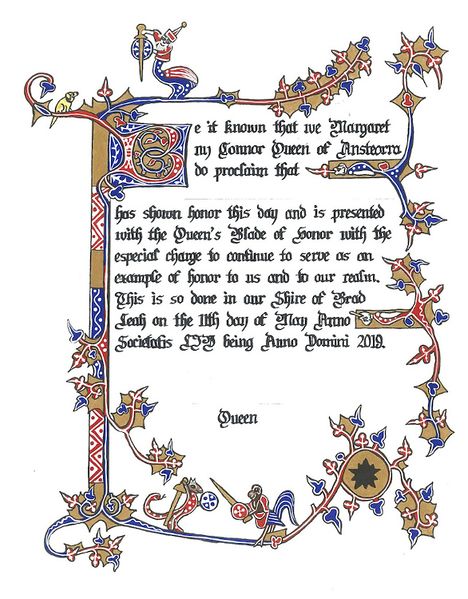 Be it known that we Margaret
ny Connor Queen of Ansteorra
do proclaim that
has shown honor this day and is presented
with the Queen's Blade of Honor with the
especial charge to continue to serve as an
example of honor to us and to our realm.
This is so done in our Shire of Brad
Leah on the 11th day of May Anno
Societatis LIV being Anno Domini 2019.
Queen